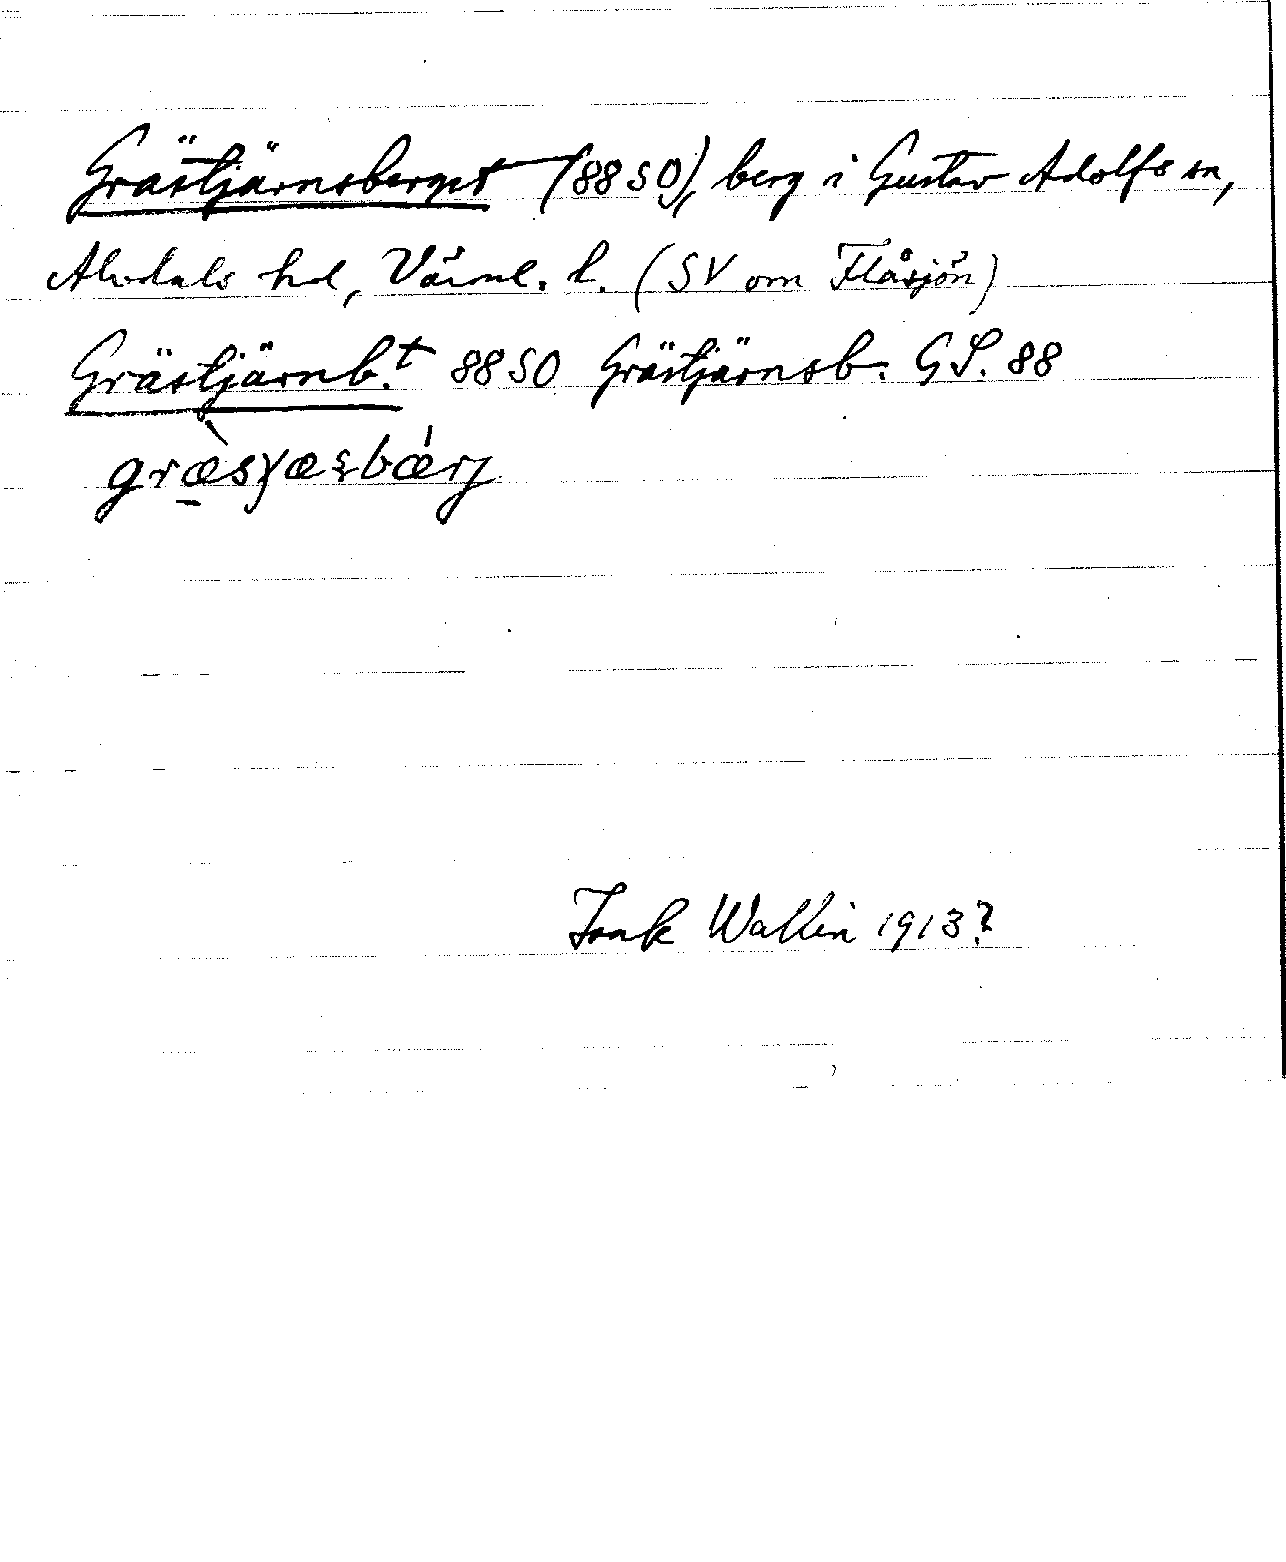 Grästjärnsberget (88 SO), berg i Gustav Adolfs sn,
Älvdals hd, Värml. l. (SV om Flåsjön)
Grästjärnb.t 88 SO Grästjärnsb. GS. 88
Wallin 1913?